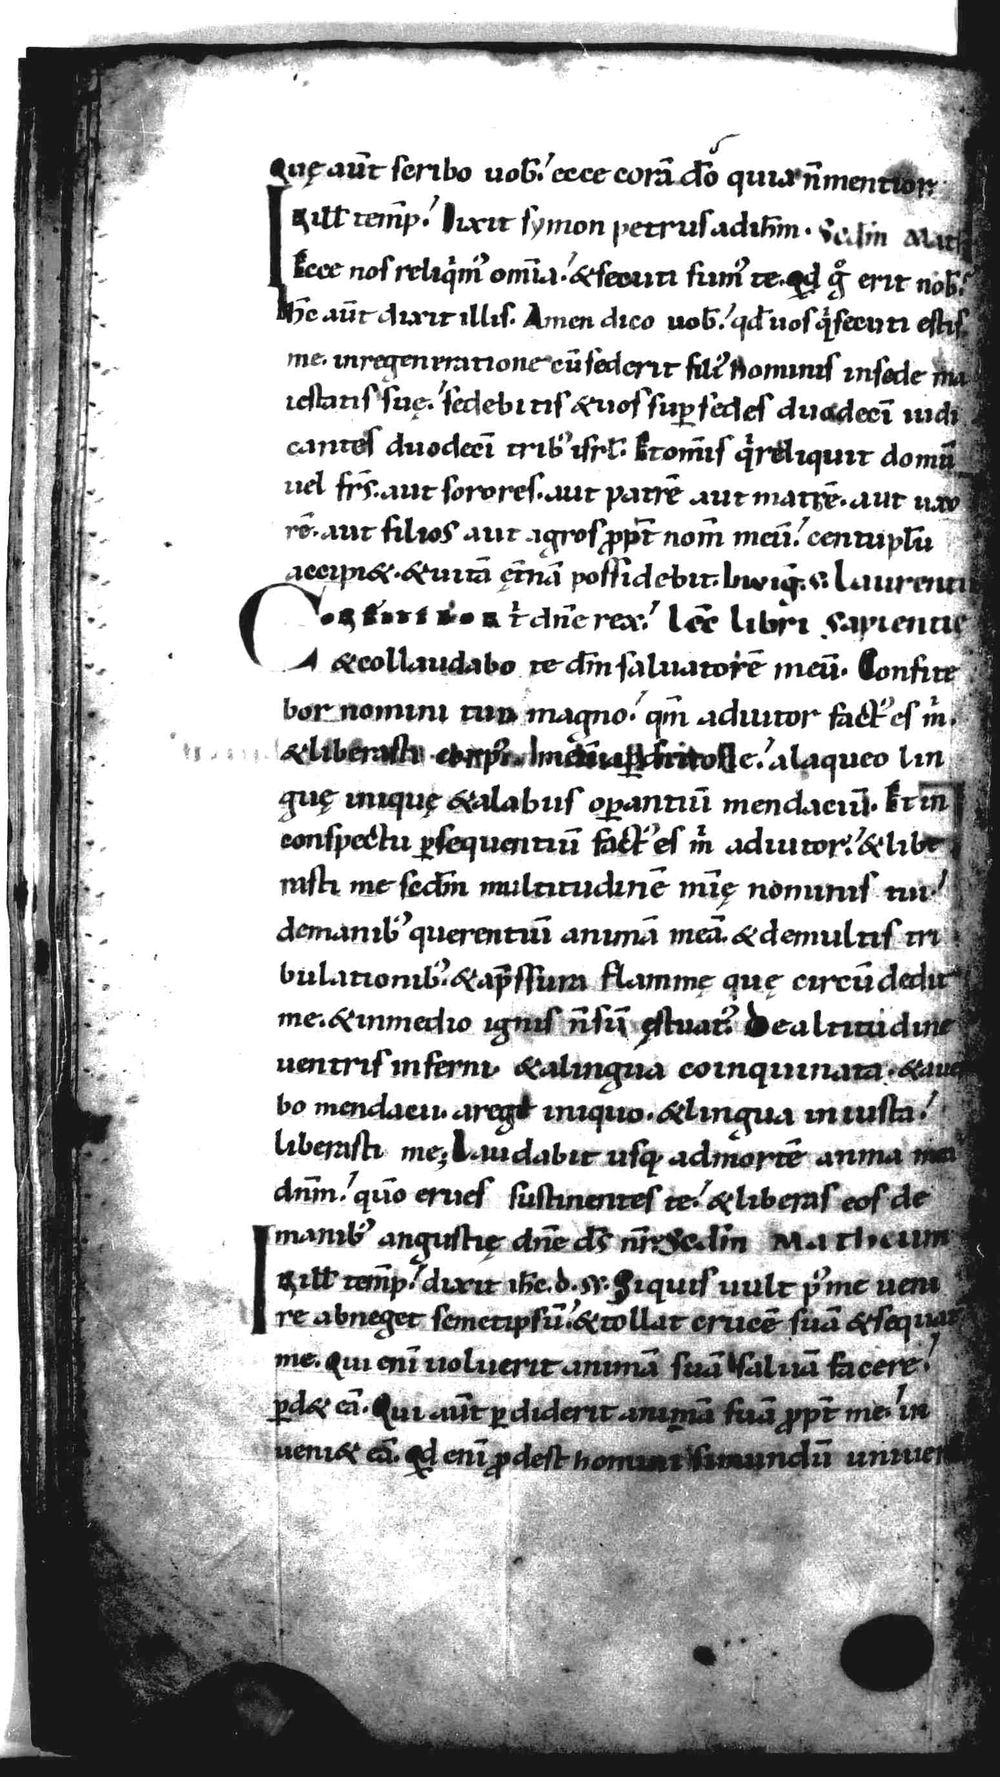 Quę aut̄ scribo uob̄. ecce corā dō quia n̄ mentior.
In ill̄ tēmp. Dixit symon petrus ad ihm̄. Secdm̄ Math
Ecce nos reliqͥmꝰ om̄ia. & secuti sumꝰ te. Qd̄ gͦ erit nob̄.
ih̄c aut̄ dixit illis. Amen dico uob̄. qd̄ uos qͥ secuti estis
me. in regeneratione cū sederit filiꝰ hominis in sede ma
iestatis suę. sedebitis & uos suꝑ sedes duodecī iudi
cantes duodecī tribꝰ isrl̄. Et om̄is qͥ reliquit domū
uel frs̄. aut sorores. aut patrē aut matrē. aut uxo
rē. aut filios aut agros ꝓpt̄ nom̄ meū. centuplū
accipi&. & uitā ęt̄nā possidebit. In uiḡ. s. Laurenti
Confitebor t̄ dn̄e rex. Lec̄ libri sapientie
& collaudabo te dm̄ saluatorē meū. Confite
bor nomini tuo magno. qm̄ adiutor fact̄ꝰ es m̄.
& liberasti a laqueo lin
guę iniquę & a labiis oꝑantiū mendaciū. Et in
conspectu ꝑsequentiū fact̄ꝰ es m̄ adiutor. & libe
rasti me secdm̄ multitudinē mīę nominis tui.
de manibꝰ querentiū animā meā. & de multis tri
bulationibꝰ. & a p̄ssura flammę quę circūdedit
me. & in medio ignis n̄ sū ęstuatꝰ. De altitudine
uentris inferni. & a lingua coinquinata. & a uer
bo mendacii. a rege iniquo. & lingua iniusta.
liberasti me; Laudabit usq; ad mortē anima mea
dnm̄. quō erues sustinentes te. & liberas eos de
manibꝰ angustię dn̄e ds̄ nr̄. Secdm̄ Matheum
In ill̄ tēmp. dixit ih̄c. d. s. Si quis uult p̓ me ueni
re abneget semetipsū. & tollat crucē suā & sequat̄
me. Qui enī uoluerit animā suā saluā facere.
ꝑd& eā. Qui aut̄ ꝑdiderit animā suā ꝓpt̄ me. in
ueni& eā. Qd̄ enī ꝓdest homini si mundū uniuer